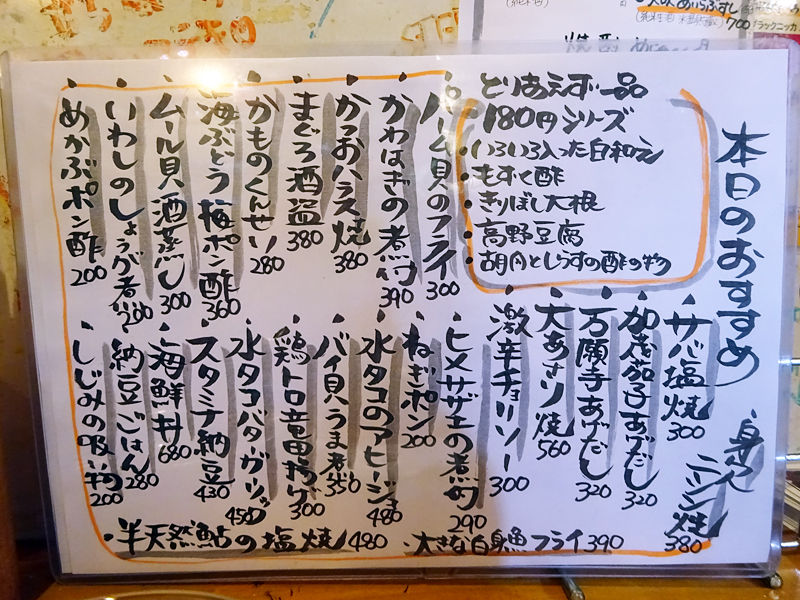 本日のおすすめ
とりあえず一品
180円シリーズ
・いろいろ入った白和え
・もずく酢
・きりぼし大根
・高野豆腐
・胡瓜としらすの酢の物
・身欠ニシン焼 380
・サバ塩焼 300
・加茂茄子あげだし 320
・万願寺あげだし 320
・大あさり焼 560
・激辛チョリソー 300
・ヒメサザエの煮付 290
・ムール貝のフライ 300
・かわはぎの煮付 390
・かつおハラス焼 380
・まぐろ酒盗 380
・かものくんせい 280
・海ぶどう梅ポン酢 360
・ムール貝酒蒸し 300
・いわしのしょうが煮 200
・めかぶポン酢 200
・ねぎポン 200
・水タコのアヒージョ 480
・バイ貝うま煮 350
・鶏トロ竜田揚げ 300
・水タコバタガーリック 450
・スタミナ納豆 430
・海鮮丼 680
・納豆ごはん 280
・しじみの吸い物 200
・半天然鮎の塩焼 480
・大きな白身魚フライ 390
700
ブラックニッカ